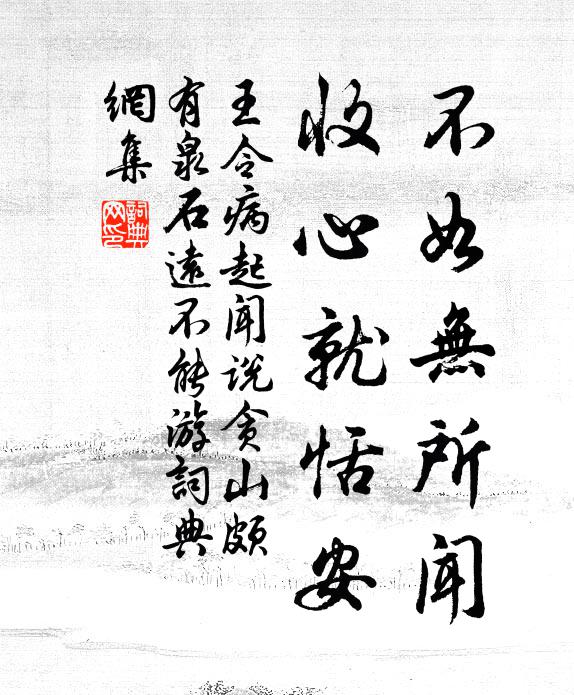 不如無所聞
收心就恬安
王令病起聞說貪山頗
有泉石遠不能游詞典
網集
詞典
网印